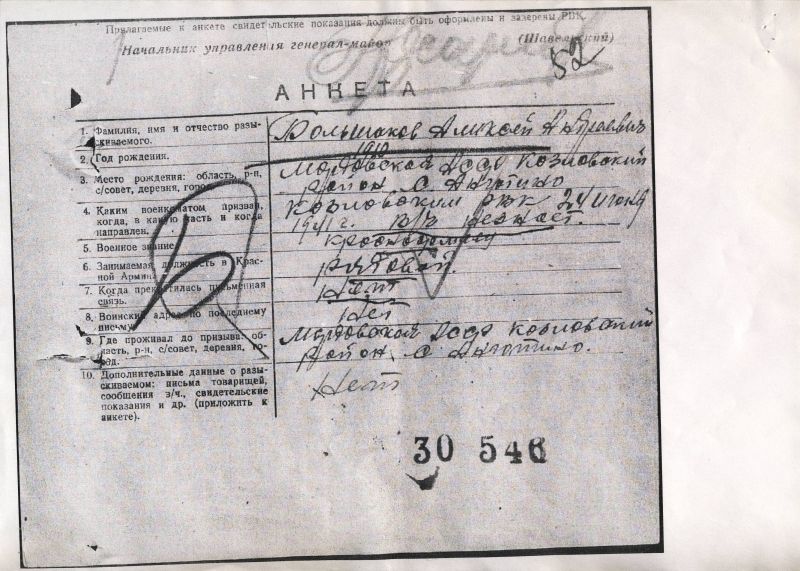 Прилагаемые к анкете свидетельские показания должны быть оформлены и заверены РВК.
Начальник управления генерал-майор (Шавельский)
52
АНКЕТА
1. Фамилия, имя и отчество разы-
скиваемого.
Большаков Алексей Андреевич
2. Год рождения.
1910
3. Место рождения: область, р-н,
с/совет, деревня, город
Мордовская Асср Козловский
район с
4. Каким военкоматом призван,
когда, в какую часть и когда
направлен.
Козловским рвк 24 июня
1941 г. в/ч
5. Военное звание
красноармеец
6. Занимаемая должность в Крас-
ной Армии.
рядовой.
7. Когда прекратилась письменная
связь.
Нет
8. Воинский адрес по последнему
письму
Нет
9. Где проживал до призыва: об-
ласть, р-н, с/совет, деревня, го-
род.
Мордовская Асср Козловский
район, с
10. Дополнительные данные о разы-
скиваемом: письма товарищей,
сообщения в/ч., свидетельские
показания и др. (приложить к
анкете).
Нет
30 546